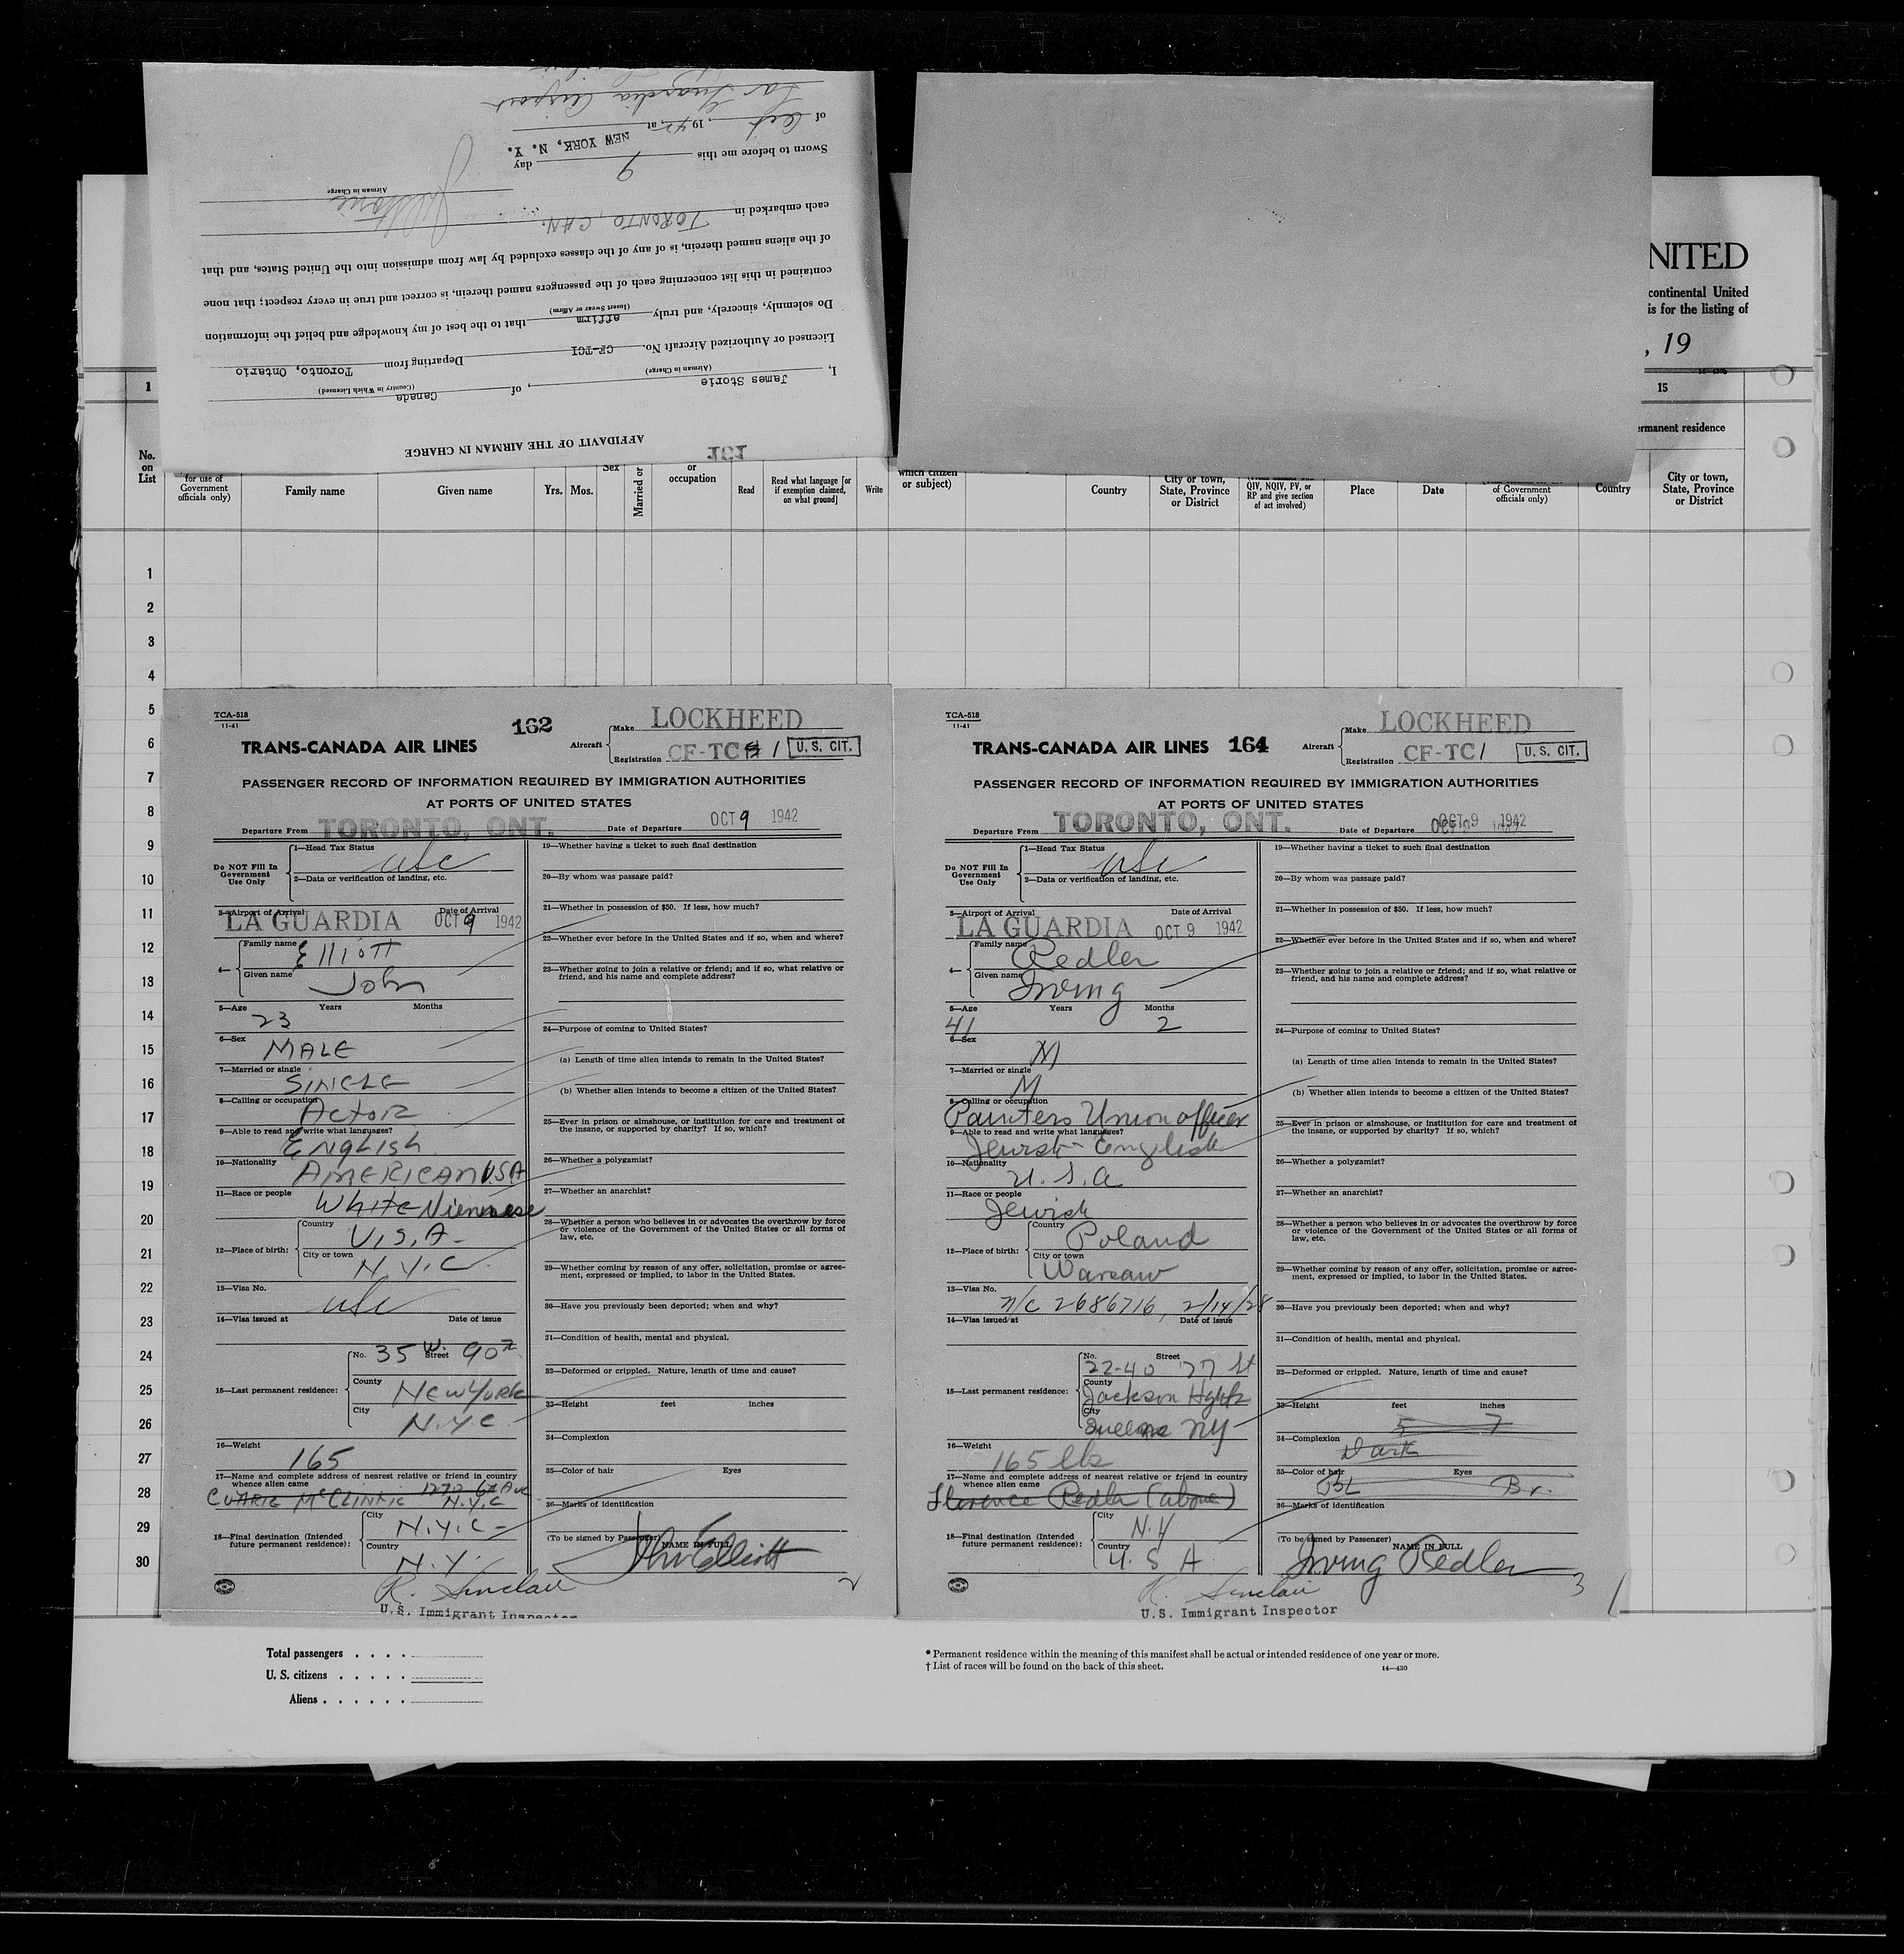 AFFIDAVIT OF THE AIRMAN IN CHARGE
151
I, James Storie, of Canada
(Airman in Charge) (Country in Which Licensed)
Licensed or Authorized Aircraft No. CF-TCI Departing from Toronto, Ontario
Do solemnly, sincerely, and truly affirm that to the best of my knowledge and belief the information
(Insert Swear or Affirm)
contained in this list concerning each of the passengers named therein, is correct and true in every respect; that none
of the aliens named therein, is of any of the classes excluded by law from admission into the United States, and that
each embarked in TORONTO, CAN.
Airman in Charge
Sworn to before me this 9 day
of Oct, 1942, at NEW YORK, N. Y.
La Guardia Airport
NITED
continental United
is for the listing of
, 19
1
15
ermanent residence
No. on List
for use of Government officials only)
Family name
Given name
Yrs. Mos.
Sex
Married or
or occupation
Read
Read what language [or if exemption claimed, on what ground]
Write
which citizen or subject)
Country
City or town, State, Province or District
QIV, NQIV, PV, or RP and give section of act involved)
Place
Date
of Government officials only)
Country
City or town, State, Province or District
1
2
3
4
5
6
7
8
9
10
11
12
13
14
15
16
17
18
19
20
21
22
23
24
25
26
27
28
29
30
TCA-518
11-41
162
TRANS-CANADA AIR LINES
Aircraft
Make LOCKHEED
Registration CF-TC 1
U. S. CIT.
PASSENGER RECORD OF INFORMATION REQUIRED BY IMMIGRATION AUTHORITIES
AT PORTS OF UNITED STATES
Departure From TORONTO, ONT. Date of Departure OCT 9 1942
Do NOT Fill In Government Use Only
1—Head Tax Status
USC
2—Data or verification of landing, etc.
3—Airport of Arrival Date of Arrival
LA GUARDIA OCT 9 1942
4—
Family name Elliott
Given name John
5—Age Years Months
23
6—Sex
MALE
7—Married or single
SINGLE
8—Calling or occupation
Actor
9—Able to read and write what languages?
ENGLISH
10—Nationality
AMERICAN U.S.A
11—Race or people
White Viennese
12—Place of birth:
Country
U.S.A.
City or town
N.Y.C.
13—Visa No.
USC
14—Visa issued at Date of issue
15—Last permanent residence:
No. 35 W. Street 90
County New York
City N.Y.C.
16—Weight
165
17—Name and complete address of nearest relative or friend in country whence alien came
McClintic 1270 6th Ave N.Y.C
18—Final destination (Intended future permanent residence):
City N.Y.C-
Country N.Y.
19—Whether having a ticket to such final destination
20—By whom was passage paid?
21—Whether in possession of $50. If less, how much?
22—Whether ever before in the United States and if so, when and where?
23—Whether going to join a relative or friend; and if so, what relative or friend, and his name and complete address?
24—Purpose of coming to United States?
(a) Length of time alien intends to remain in the United States?
(b) Whether alien intends to become a citizen of the United States?
25—Ever in prison or almshouse, or institution for care and treatment of the insane, or supported by charity? If so, which?
26—Whether a polygamist?
27—Whether an anarchist?
28—Whether a person who believes in or advocates the overthrow by force or violence of the Government of the United States or all forms of law, etc.
29—Whether coming by reason of any offer, solicitation, promise or agreement, expressed or implied, to labor in the United States.
30—Have you previously been deported; when and why?
31—Condition of health, mental and physical.
32—Deformed or crippled. Nature, length of time and cause?
33—Height feet inches
34—Complexion
35—Color of hair Eyes
36—Marks of identification
(To be signed by Passenger) NAME IN FULL
John Elliott
R. Sinclair
U.S. Immigrant Inspector
2
TCA-518
11-41
TRANS-CANADA AIR LINES 164
Aircraft
Make LOCKHEED
Registration CF-TC1
U. S. CIT.
PASSENGER RECORD OF INFORMATION REQUIRED BY IMMIGRATION AUTHORITIES
AT PORTS OF UNITED STATES
Departure From TORONTO, ONT. Date of Departure OCT 9 1942
Do NOT Fill In Government Use Only
1—Head Tax Status
USC
2—Data or verification of landing, etc.
3—Airport of Arrival Date of Arrival
LA GUARDIA OCT 9 1942
4—
Family name Redler
Given name Irving
5—Age Years Months
41 2
6—Sex
M
7—Married or single
M
8—Calling or occupation
Painters Union officer
9—Able to read and write what languages?
Jewish - English
10—Nationality
U.S.A
11—Race or people
Jewish
12—Place of birth:
Country
Poland
City or town
Warsaw
13—Visa No.
N/C 2686716, 2/14/28
14—Visa issued at Date of issue
15—Last permanent residence:
No. Street
22-40 77 St
County
Jackson Hghts
City
Queens NY
16—Weight
165 lbs
17—Name and complete address of nearest relative or friend in country whence alien came
Florence Redler (above)
18—Final destination (Intended future permanent residence):
City
N.Y
Country
U.S A
19—Whether having a ticket to such final destination
20—By whom was passage paid?
21—Whether in possession of $50. If less, how much?
22—Whether ever before in the United States and if so, when and where?
23—Whether going to join a relative or friend; and if so, what relative or friend, and his name and complete address?
24—Purpose of coming to United States?
(a) Length of time alien intends to remain in the United States?
(b) Whether alien intends to become a citizen of the United States?
25—Ever in prison or almshouse, or institution for care and treatment of the insane, or supported by charity? If so, which?
26—Whether a polygamist?
27—Whether an anarchist?
28—Whether a person who believes in or advocates the overthrow by force or violence of the Government of the United States or all forms of law, etc.
29—Whether coming by reason of any offer, solicitation, promise or agreement, expressed or implied, to labor in the United States.
30—Have you previously been deported; when and why?
31—Condition of health, mental and physical.
32—Deformed or crippled. Nature, length of time and cause?
33—Height feet inches
5 7
34—Complexion
Dark
35—Color of hair Eyes
BL Br.
36—Marks of identification
(To be signed by Passenger) NAME IN FULL
Irving Redler
3
R. Sinclair
U.S. Immigrant Inspector
Total passengers . . . .
U. S. citizens . . . . .
Aliens . . . . . .
* Permanent residence within the meaning of this manifest shall be actual or intended residence of one year or more.
† List of races will be found on the back of this sheet.
14—430